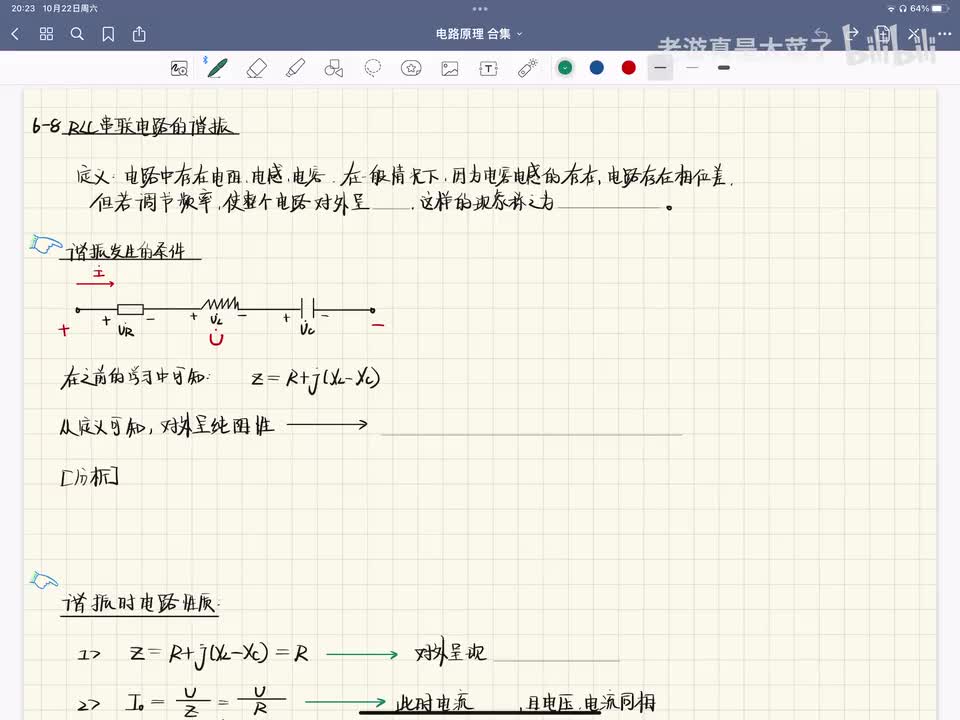 20:23 10月22日周六
64%
电路原理 合集
老游真是大菜了 bilibili
6-8 RLC串联电路的谐振
定义: 电路中存在电阻.电感.电容. 在一般情况下,因为电容电感的存在,电路存在相位差.
但若调节频率,使整个电路对外呈____.这样的现象称之为________。
谐振发生的条件
İ
+ + U̇R - + U̇L - + U̇C - -
U̇
在之前的学习中可知: Z=R+j(XL-XC)
从定义可知,对外呈纯阻性 → ________
[分析]
谐振时电路性质:
1> Z=R+j(XL-XC)=R → 对外呈现________
2> I₀=U/Z=U/R → 此时电流____,且电压.电流同相